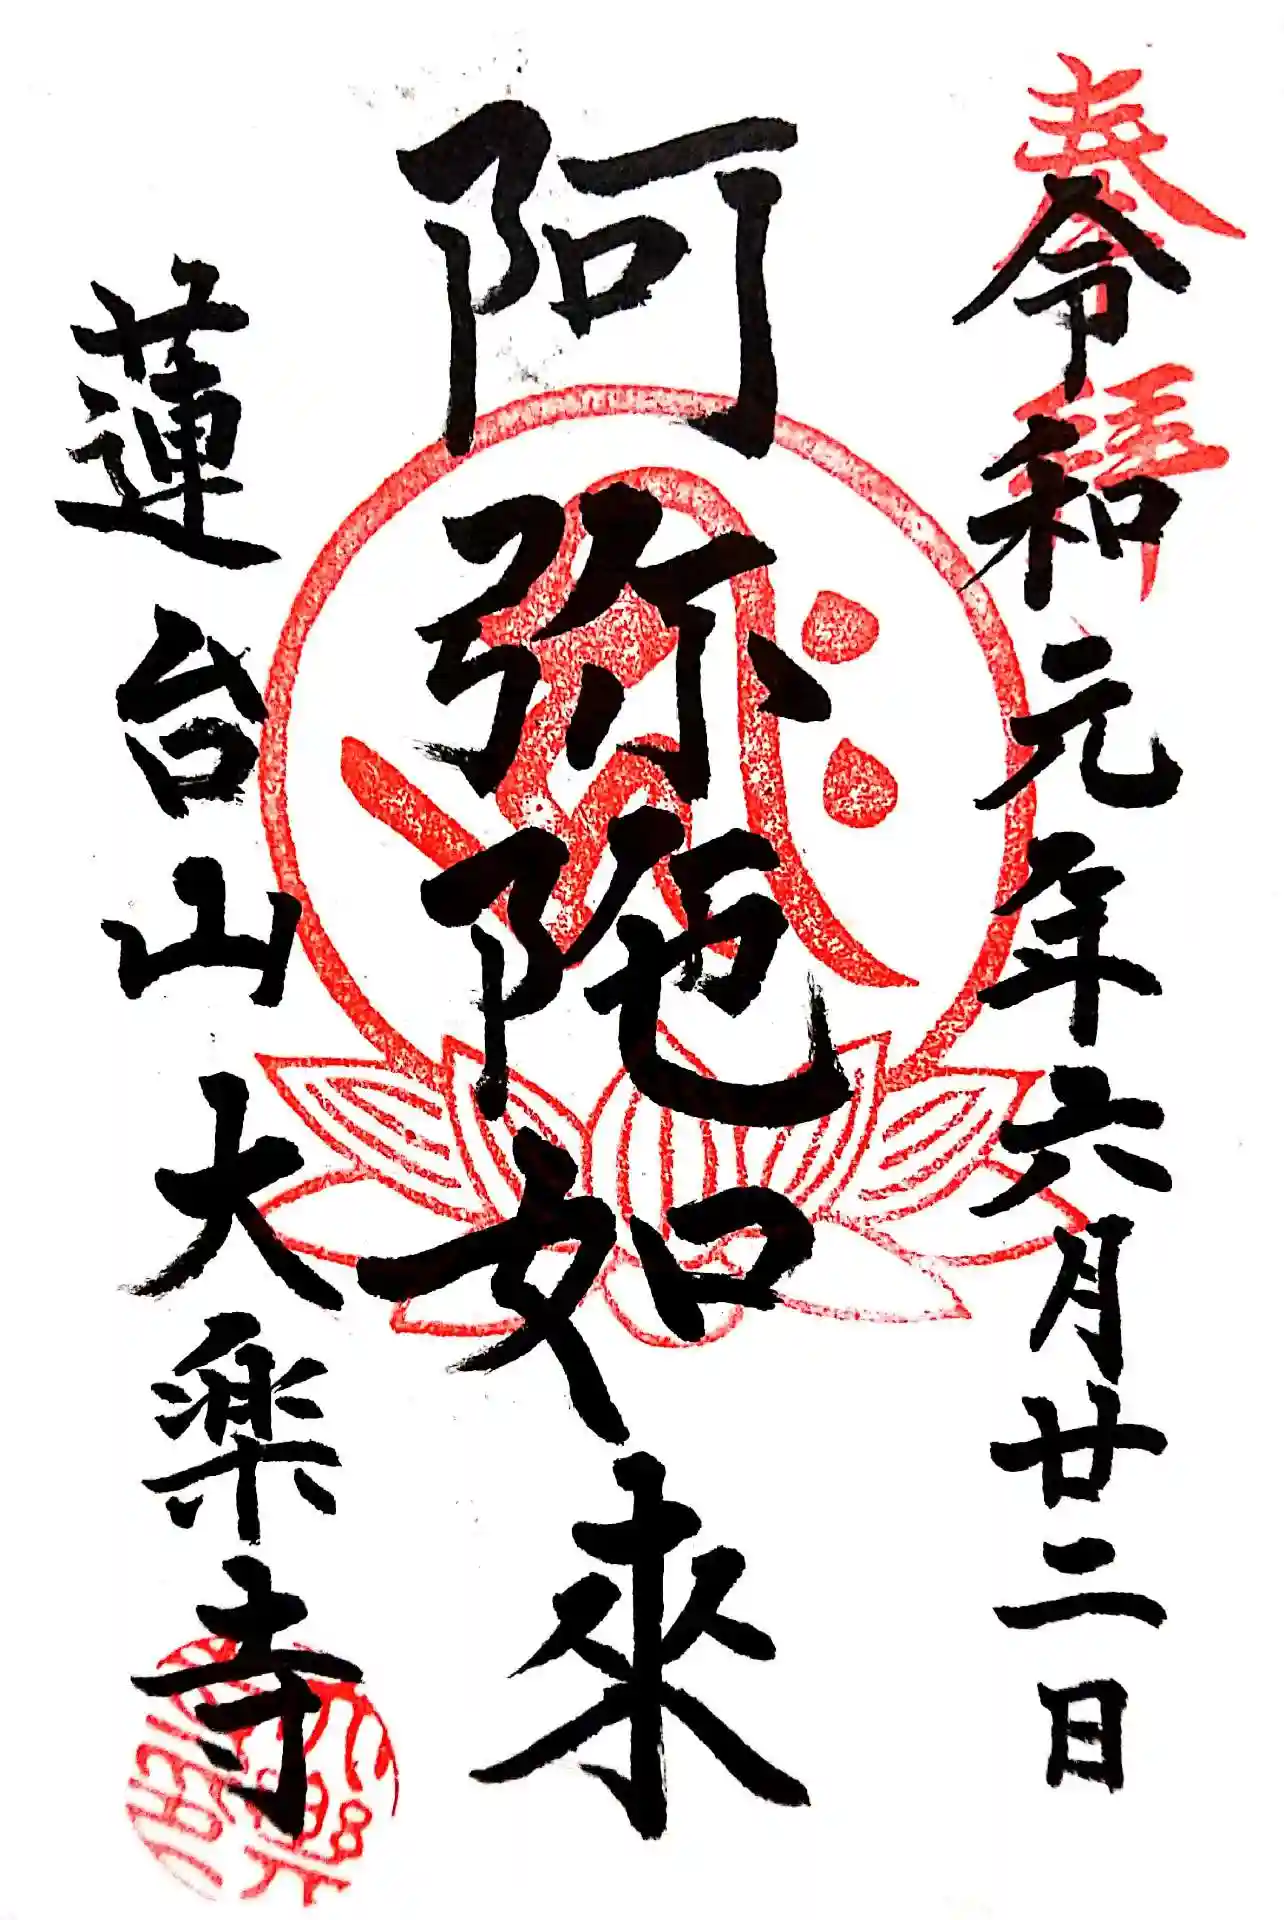 奉拝
令和元年六月廿二日
阿弥陀如來
蓮台山大楽寺